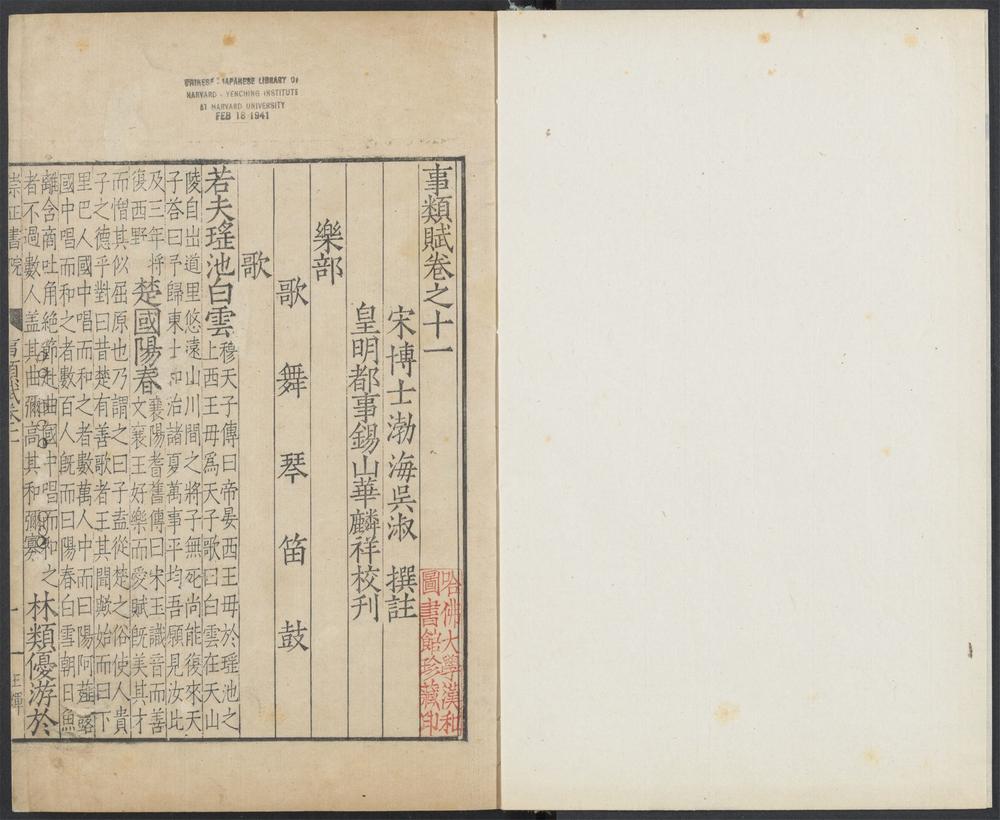 CHINESE - JAPANESE LIBRARY OF
HARVARD - YENCHING INSTITUTE
AT HARVARD UNIVERSITY
FEB 18 1941
事類賦卷之十一
哈佛大學漢和
圖書館珍藏印
宋博士渤海吳淑 撰註
皇明都事錫山華麟祥校刊
樂部
歌 舞 琴 笛 鼓
歌
若夫瑤池白雲
穆天子傳曰帝晏西王母於瑤池之
上西王母爲天子歌曰白雲在天山
陵自出道里悠遠山川間之將子無死尚能復來天
子荅曰予歸東土和治諸夏萬事平均吾願見汝比
及三年將
復西野
楚國陽春
襄陽耆舊傳曰宋玉識音而善
文襄王好樂而愛賦旣美其才
而憎其似屈原也乃謂之曰子盍從楚之俗使人貴
子之德乎對曰昔楚有善歌者王其聞歟始而曰下
里巴人國中唱而和之者數萬人中而曰陽阿薤露
國中唱而和之者數百人旣而曰陽春白雪朝日魚
離含商吐角絶節赴曲國中唱而和之
者不過數人盖其曲彌高其和彌寡
林類優游於
崇正書院
事類賦卷十一
一